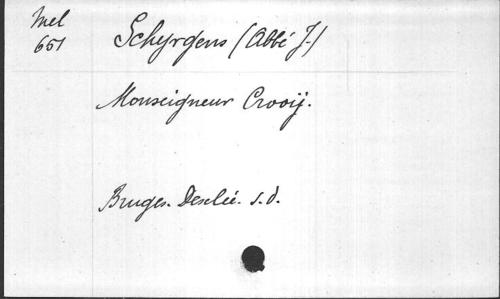 Mel
651
Schyrgens (Abbé J.)
Monseigneur Crooij.
Bruges. Desclée. s.d.